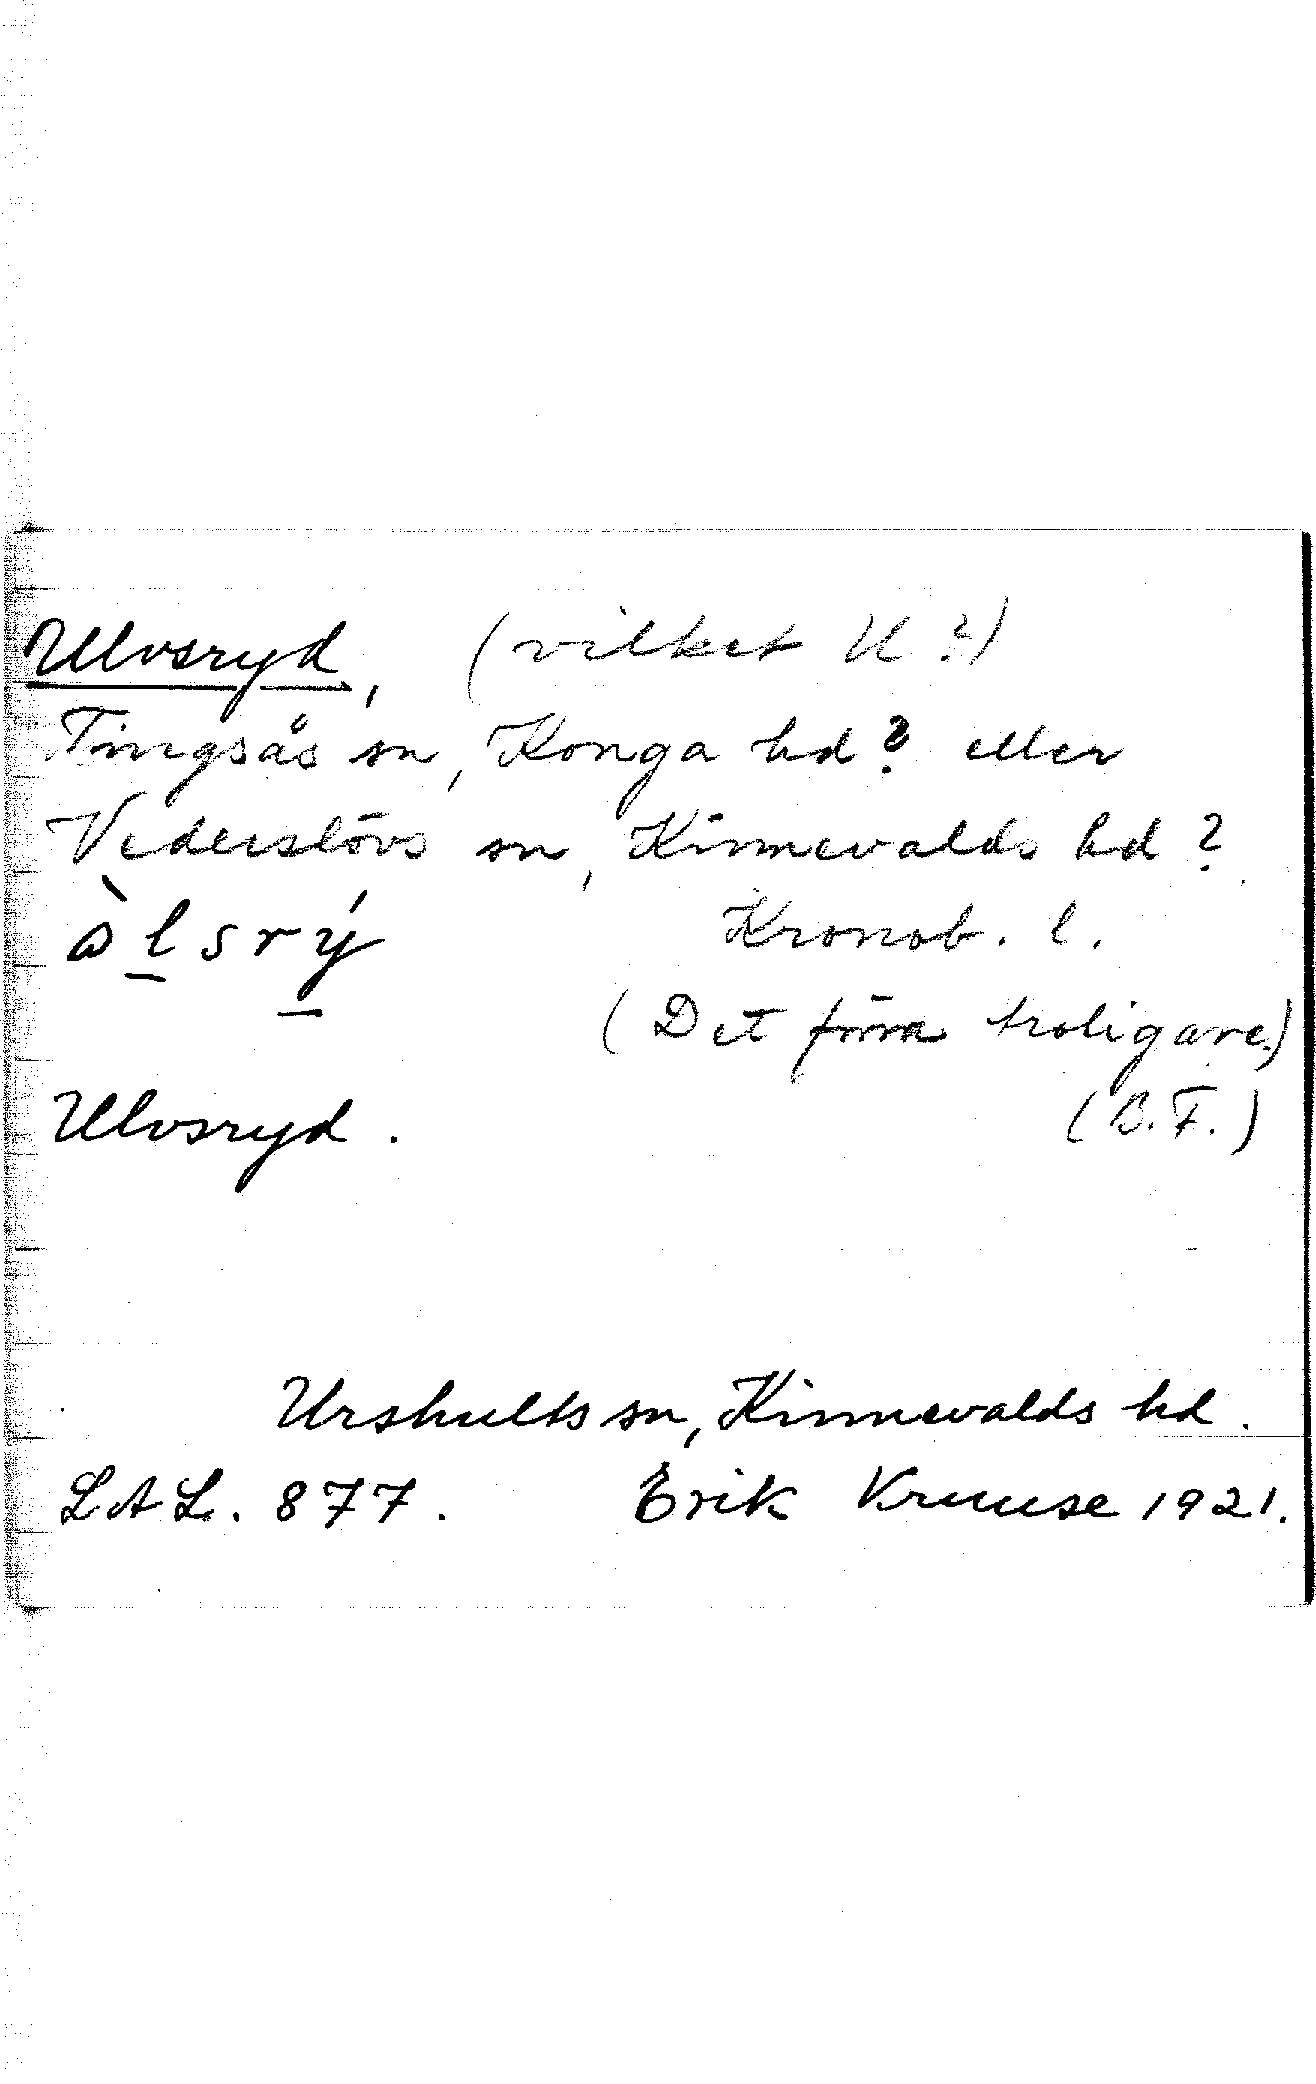 Ulvsryd, (vilket U?)
Tingsås sn, Konga hd? eller
Vederslövs sn, Kinnevalds hd?
òl̲srý̲ Kronob. l.
(Det förra troligare.)
Ulvsryd. (B.F.)
Urshults sn, Kinnevalds hd.
LAL. 877. Erik Kruuse 1921.